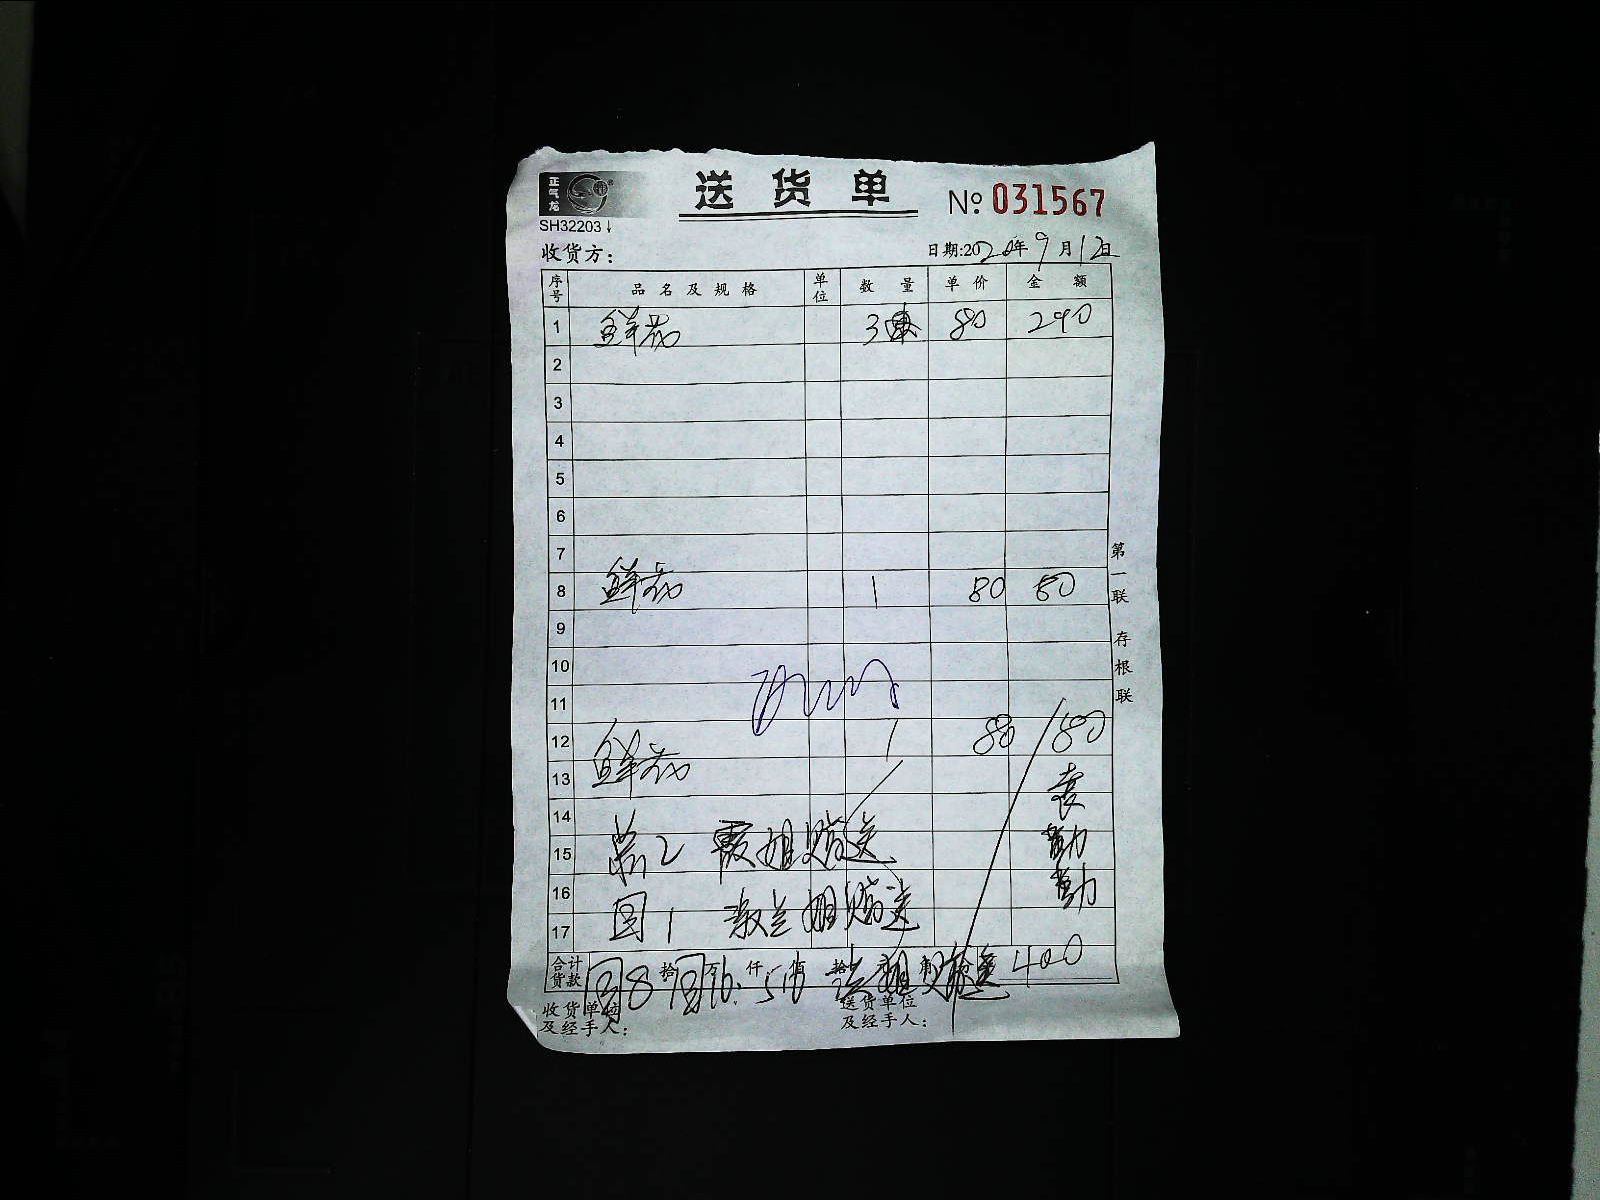 正气龙
送货单
No 031567
SH32203
收货方：
日期:2020年9月12日
序号 品名及规格 单位 数量 单价 金额
1 鲜花 3 80 240
2
3
4
5
6
7
8 鲜花 1 80 80
9
10
11
12 鲜花 1 80 80
13
14
15 2 霞姐赠送
16
17 1 姐赠送
合计货款 拾 万 仟 佰 拾 元 角 400
收货单位及经手人：
送货单位及经手人：
第一联 存根联